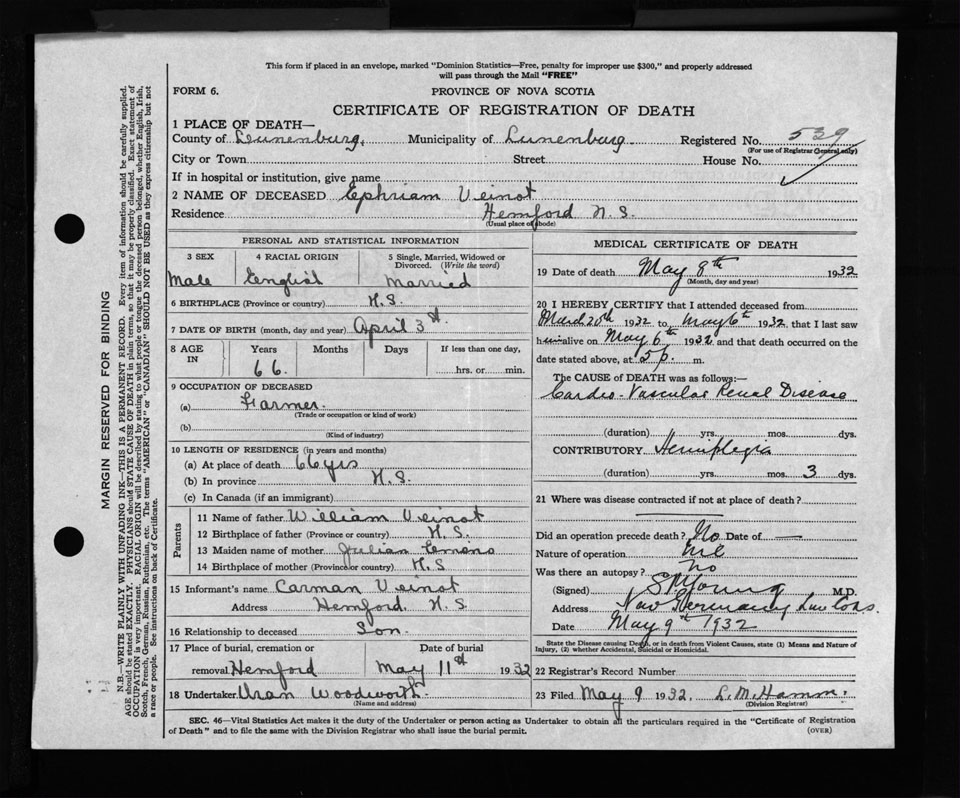 This form if placed in an envelope, marked "Dominion Statistics—Free, penalty for improper use $300," and properly addressed
will pass through the Mail "FREE"
FORM 6. PROVINCE OF NOVA SCOTIA
CERTIFICATE OF REGISTRATION OF DEATH
1 PLACE OF DEATH—
County of Lunenburg. Municipality of Lunenburg Registered No. 539
(For use of Registrar General only)
City or Town Street House No.
If in hospital or institution, give name
2 NAME OF DECEASED Ephriam Veinot
Residence Hemford N.S.
(Usual place of abode)
PERSONAL AND STATISTICAL INFORMATION
3 SEX 4 RACIAL ORIGIN 5 Single, Married, Widowed or
Divorced. (Write the word)
Male English Married
6 BIRTHPLACE (Province or country) N.S.
7 DATE OF BIRTH (month, day and year) April 3st.
8 AGE IN Years Months Days If less than one day,
66. hrs. or min.
9 OCCUPATION OF DECEASED
(a) Farmer.
(Trade or occupation or kind of work)
(b)
(Kind of industry)
10 LENGTH OF RESIDENCE (in years and months)
(a) At place of death 66 yrs
(b) In province N.S.
(c) In Canada (if an immigrant)
Parents
11 Name of father William Veinot
12 Birthplace of father (Province or country) N.S.
13 Maiden name of mother Julian
14 Birthplace of mother (Province or country) N.S
15 Informant's name Carman Veinot
Address Hemford. N.S.
16 Relationship to deceased Son.
17 Place of burial, cremation or Date of burial
removal Hemford May 11st 1932
18 Undertaker Uran Woodworth.
(Name and address)
MEDICAL CERTIFICATE OF DEATH
19 Date of death May 8th 1932
(Month, day and year)
20 I HEREBY CERTIFY that I attended deceased from
March 20th 1932 to May 6th 1932, that I last saw
him alive on May 6th 1932 and that death occurred on the
date stated above, at 5 p. m.
The CAUSE OF DEATH was as follows:—
Cardio-Vascular Renal Disease
(duration) yrs. mos. dys.
CONTRIBUTORY Hemiplegia
(duration) yrs. mos. 3 dys.
21 Where was disease contracted if not at place of death?
Did an operation precede death? No Date of —
Nature of operation Nil
Was there an autopsy? No
(Signed) Young M.D.
Address New Germany Lun Co NS.
Date May 9th 1932
State the Disease causing Death, or in death from Violent Causes, state (1) Means and Nature of
Injury, (2) whether Accidental, Suicidal or Homicidal.
22 Registrar's Record Number
23 Filed May 9 1932. L. M. Hamm.
(Division Registrar)
SEC. 46—Vital Statistics Act makes it the duty of the Undertaker or person acting as Undertaker to obtain all the particulars required in the "Certificate of Registration
of Death" and to file the same with the Division Registrar who shall issue the burial permit. (OVER)
MARGIN RESERVED FOR BINDING
N.B.—WRITE PLAINLY WITH UNFADING INK—THIS IS A PERMANENT RECORD. Every item of information should be carefully supplied.
AGE should be stated EXACTLY. PHYSICIANS should STATE CAUSE OF DEATH in plain terms, so that it may be properly classified. Exact statement of
OCCUPATION is very important. RACIAL ORIGIN will be described by stating to what people or tongue the deceased person belonged, whether English, Irish,
Scotch, French, German, Russian, Ruthenian, etc. The terms "AMERICAN" or "CANADIAN" SHOULD NOT BE USED as they express citizenship but not
a race or people. See instructions on back of Certificate.